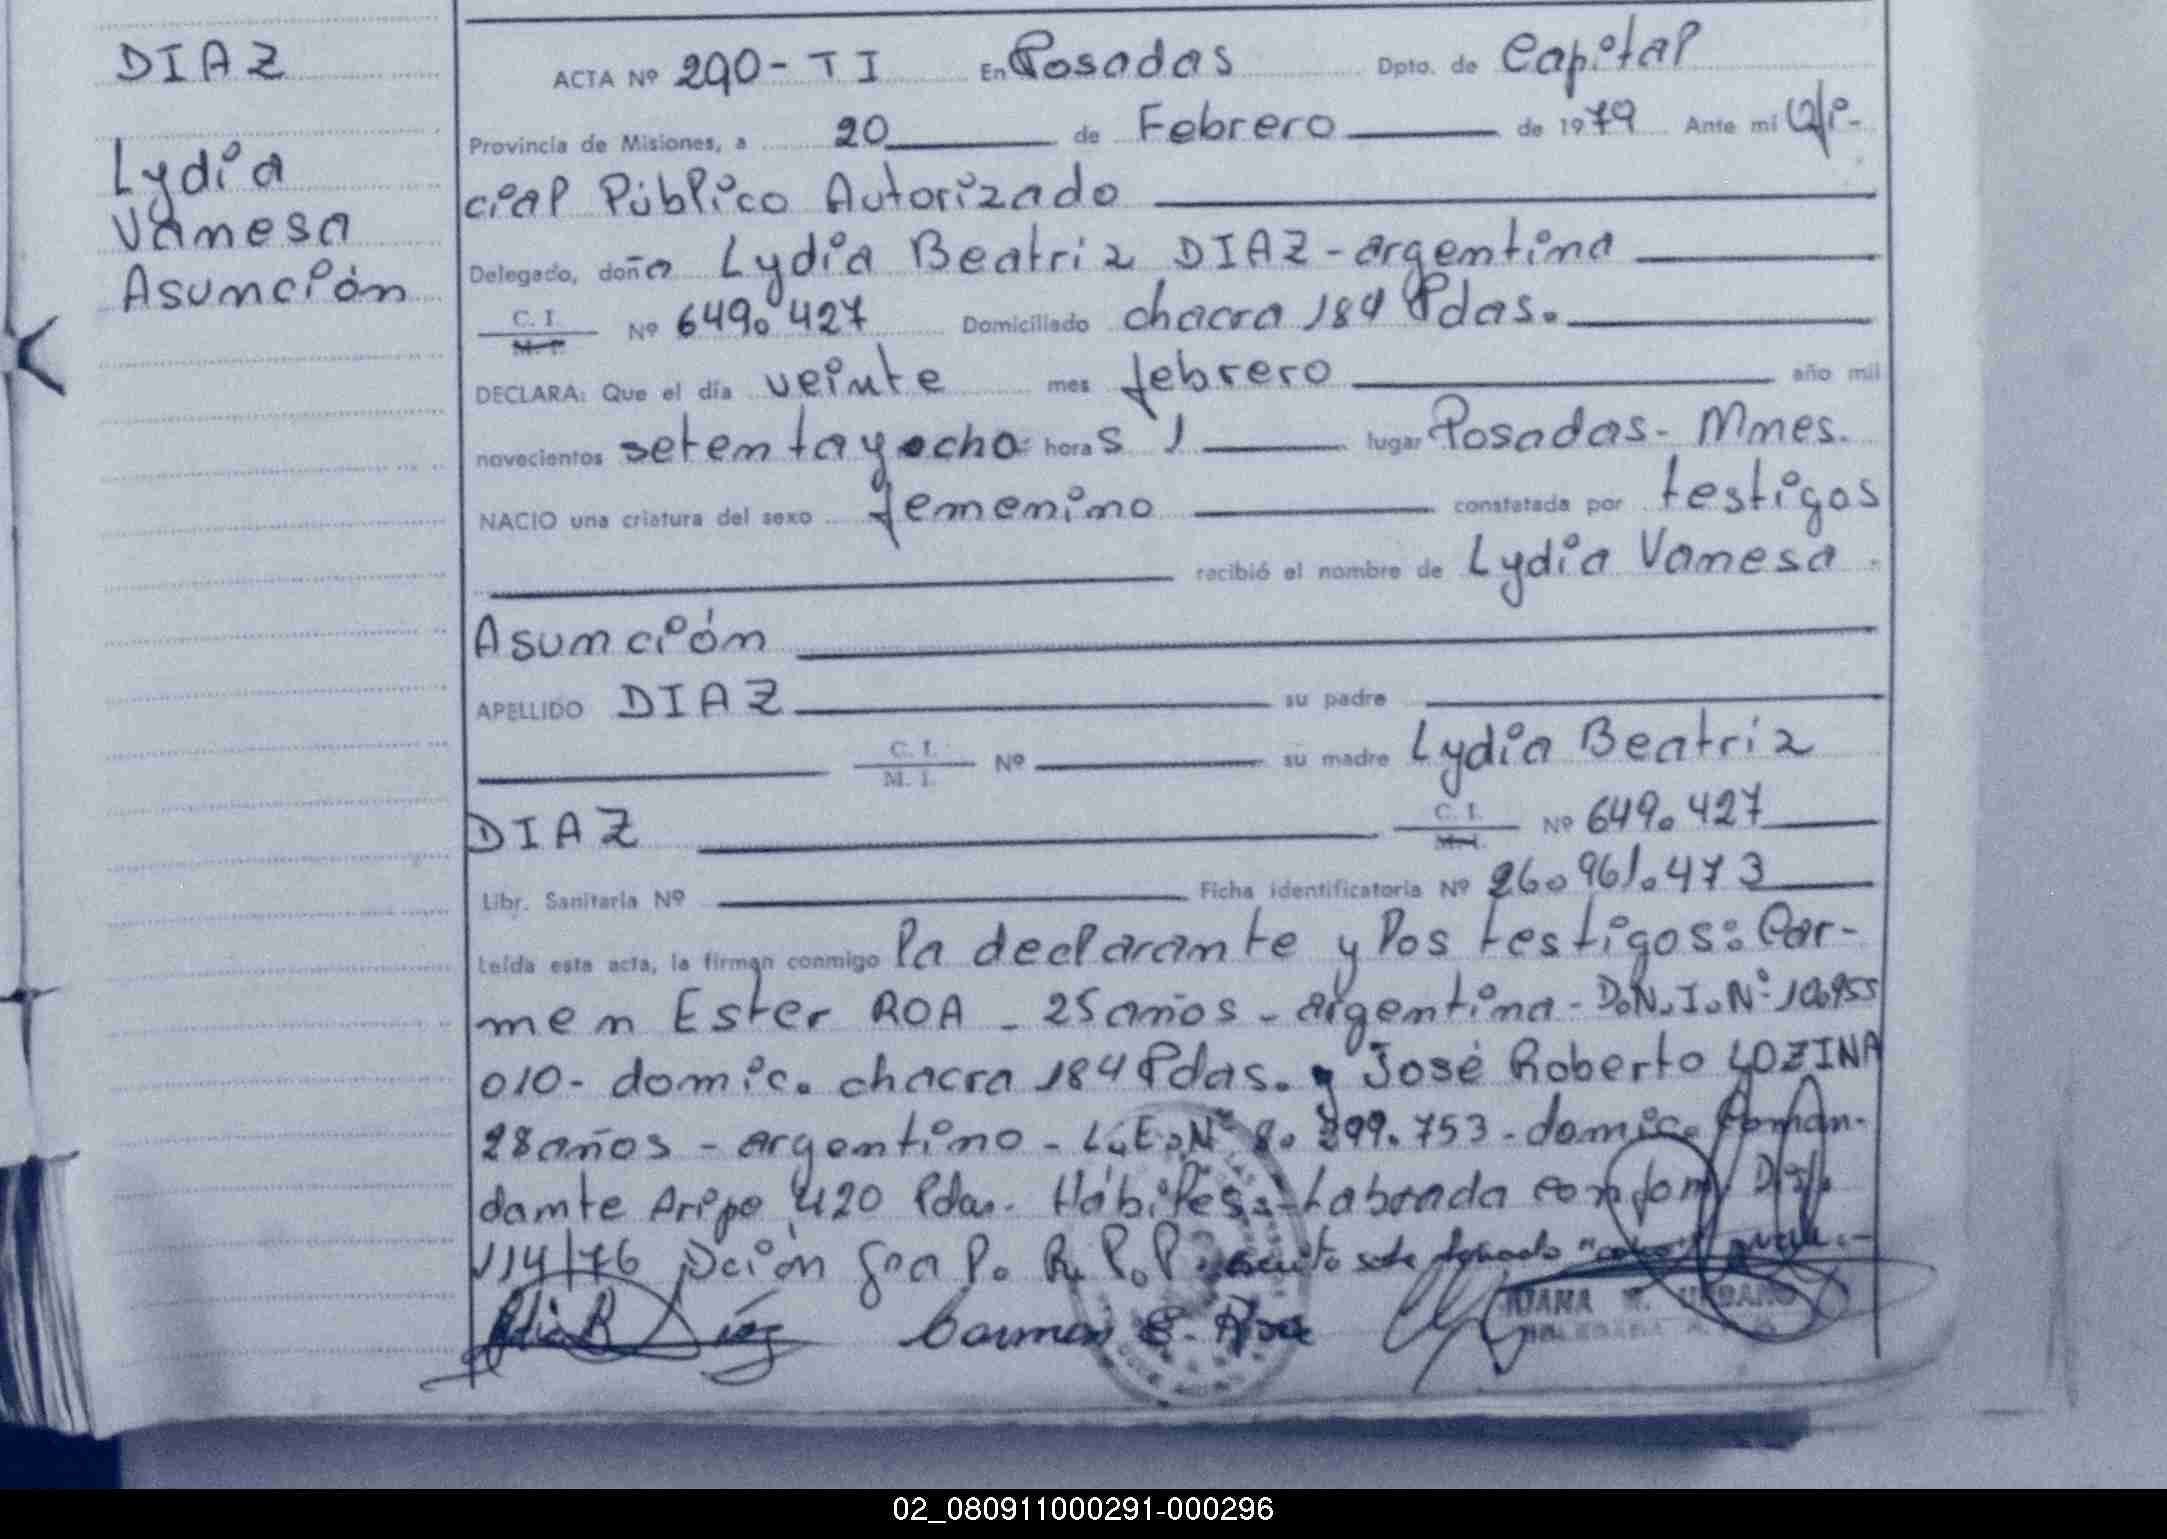 DIAZ
Lydia
Vanesa
Asunción
ACTA Nº 290-TI En Posadas Dpto. de Capital
Provincia de Misiones, a 20 de Febrero de 1979 Ante mi Ofi-
cial Público Autorizado
Delegado, doña Lydia Beatriz DIAZ - argentina
C. I. M. I. Nº 649.427 Domiciliado chacra 184 Pdas.
DECLARA: Que el día veinte mes febrero año mil
novecientos setenta y ocho hora s 1 lugar Posadas - Mnes.
NACIO una criatura del sexo femenino constatada por testigos
recibió el nombre de Lydia Vanesa
Asunción
APELLIDO DIAZ su padre
C. I. M. I. Nº su madre Lydia Beatriz
DIAZ C. I. M. I. Nº 649.427
Libr. Sanitaria Nº Ficha identificatoria Nº 26.961.473
Leída esta acta, la firman conmigo la declarante y los testigos: Car-
men Ester ROA - 25 años - argentina - D.N.I. Nº 10.955
010 - domic. chacra 184 Pdas. y José Roberto LOZINA
28 años - argentino - L.E. Nº 8.299.753 - domic. Coman-
dante Aripo 420 Pdas. Hábiles - Labrada conform Disp.
114/76 Dción Gral. R. P. P.
Carmen E. Roa
JUANA URBANO
02_080911000291-000296